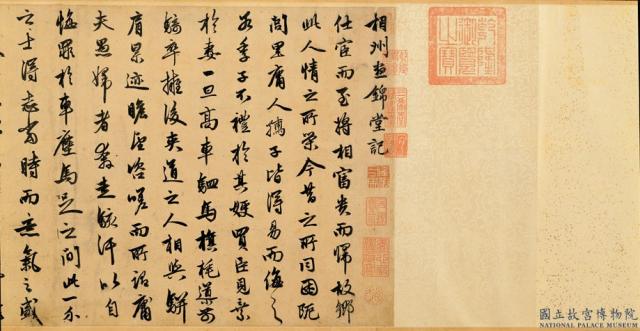 相州晝錦堂記
仕宦而至將相富貴而歸故鄉
此人情之所榮今昔之所同困阨
閭里庸人孺子皆得易而侮之
若季子不禮於其嫂買臣見棄
於妻一旦高車駟馬旗旄導前
騎卒擁後夾道之人相與駢
肩累迹瞻望咨嗟而所謂庸
夫愚婦者奔走駭汗以自
悔罪於車塵馬足之間此一介
之士得志當時而意氣之盛
國立故宮博物院
NATIONAL PALACE MUSEUM